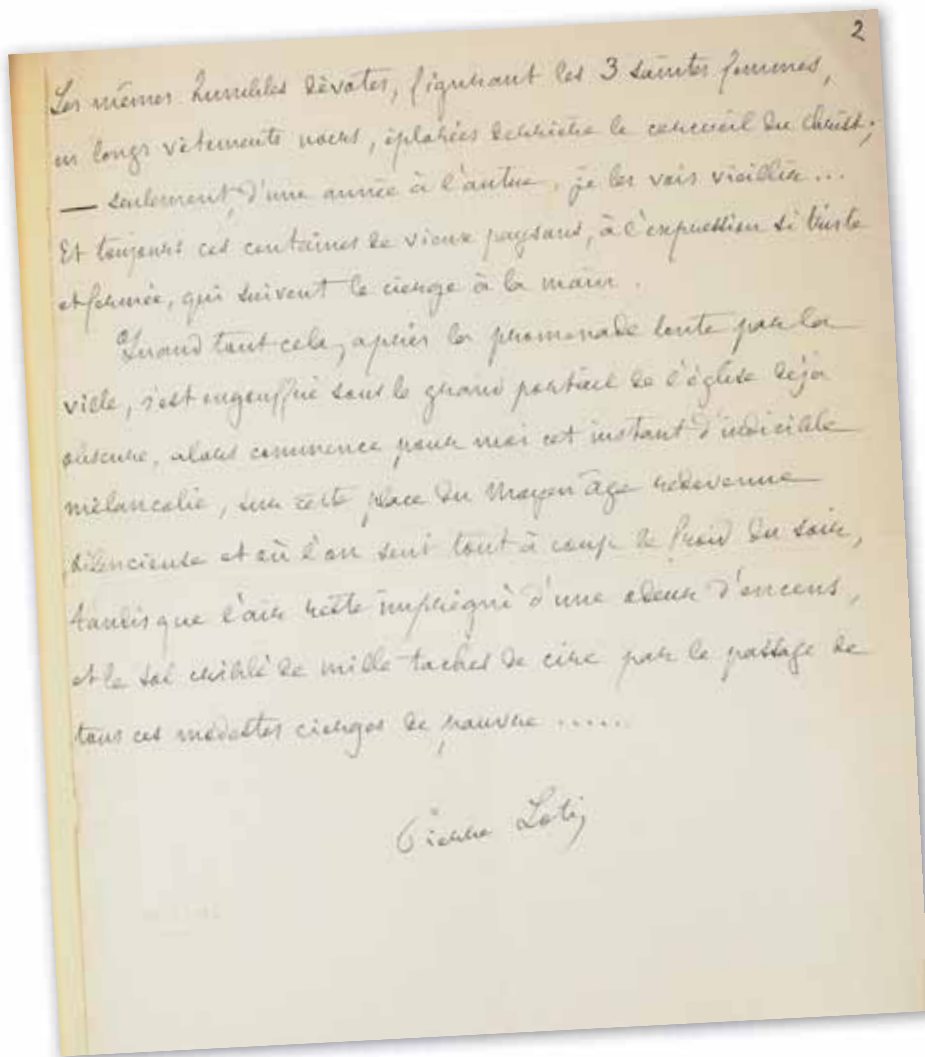 2
Les mêmes humbles dévotes, figurant les 3 saintes femmes,
en longs vêtements noirs, éplorées derrière le cercueil du Christ;
— seulement, d'une année à l'autre, je les vois vieillir...
Et toujours ces centaines de vieux paysans, à l'expression si triste
et fermée, qui suivent le cierge à la main.
Quand tout cela, après la promenade lente par la
ville, s'est engouffré sous le grand portail de l'église déjà
obscure, alors commence pour moi cet instant d'indicible
mélancolie, sur cette place du Moyen Age redevenue
silencieuse et où l'on sent tout à coup le froid du soir,
tandis que l'air reste imprégné d'une odeur d'encens,
et le sol criblé de mille taches de cire par le passage de
tous ces modestes cierges de pauvre .....
Pierre Loti